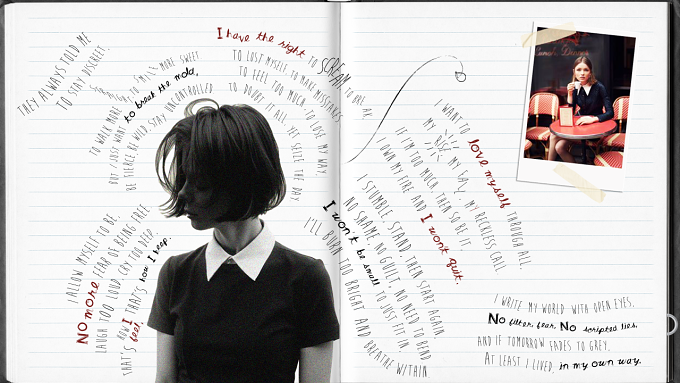 THEY ALWAYS TOLD ME
TO STAY DISCREET.
TO WALK MORE
TO SMILE MORE SWEET
BUT I JUST WANT to break the mold,
BE FIERCE, BE WILD, STAY UNCONTROLLED
I have the right TO SCREAM TO
TO LOST MYSELF, TO MAKE MISSTAKES
TO FEEL TOO MUCH, TO LOSE MY WAY,
TO DOUBT IT ALL, YET SEIZE THE DAY
I ALLOW MYSELF TO BE.
NO more FEAR OF BEING FREE
LAUGH TOO LOUD, CRY TOO DEEP
THAT'S HOW I feel. THAT'S how I keep.
I WANT TO love myself THROUGH ALL.
MY RISE, MY FALL, MY RECKLESS CALL.
IF I'M TOO MUCH, THEN SO BE IT
I OWN MY FIRE AND I won't quit.
I STUMBLE, STAND, THEN START AGAIN
NO SHAME, NO GUILT, NO NEED TO BEND
I won't be small TO JUST FIT IN
I'LL BURN TOO BRIGHT AND BREATHE WITHIN
I WRITE MY WORLD WITH OPEN EYES,
No filter, fear, No scripted lies,
AND IF TOMORROW FADES TO GREY.
AT LEAST I LIVED, in my own way.
Lunch Dinner